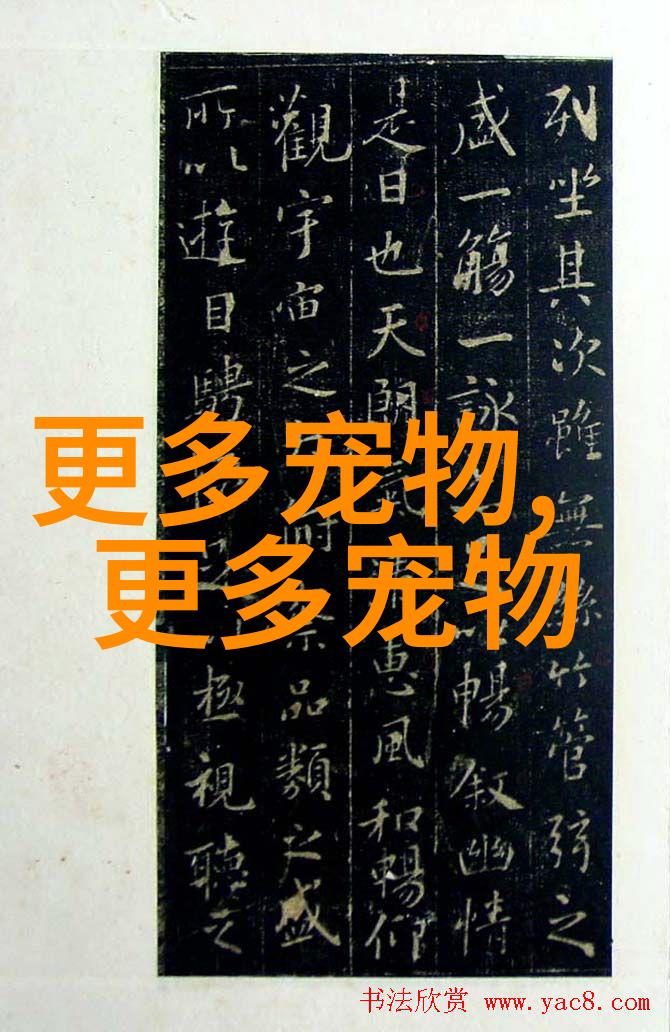 列坐其次雖無絲竹管弦之
盛一觴一詠暢叙幽情
是日也天朗惠風和暢仰
觀宇宙之品類之盛
所以遊目騁極視聽之
更多宠物,
更多宠物
书法欣赏 www.yac8.com